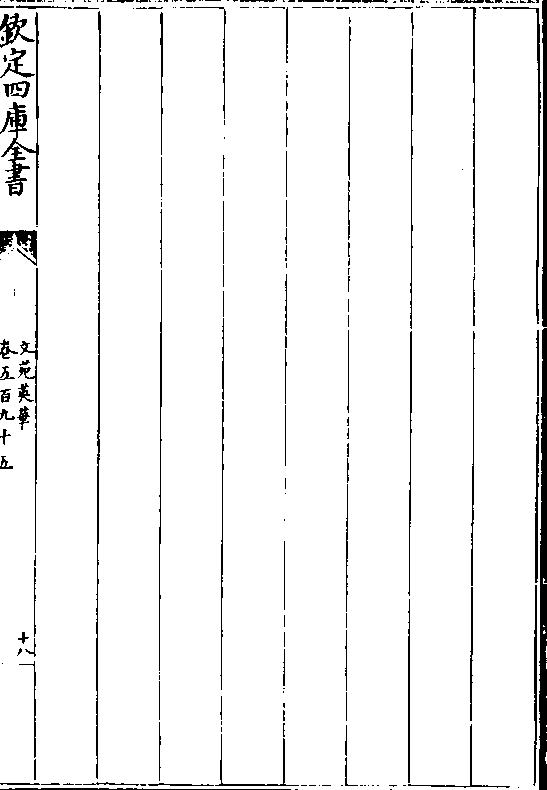 欽定四庫全書
文苑英華
卷五百九十五
十八